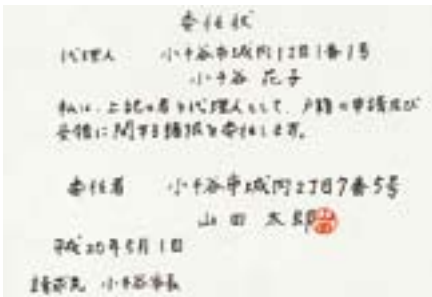 委任状
代理人 小千谷市城内1丁目1番1号
小千谷 花子
私は、上記の者を代理人として、戸籍の申請及び
受領に関する権限を委任します。
委任者 小千谷市城内2丁目7番5号
山田 太郎
平成20年5月1日
請求先 小千谷市長